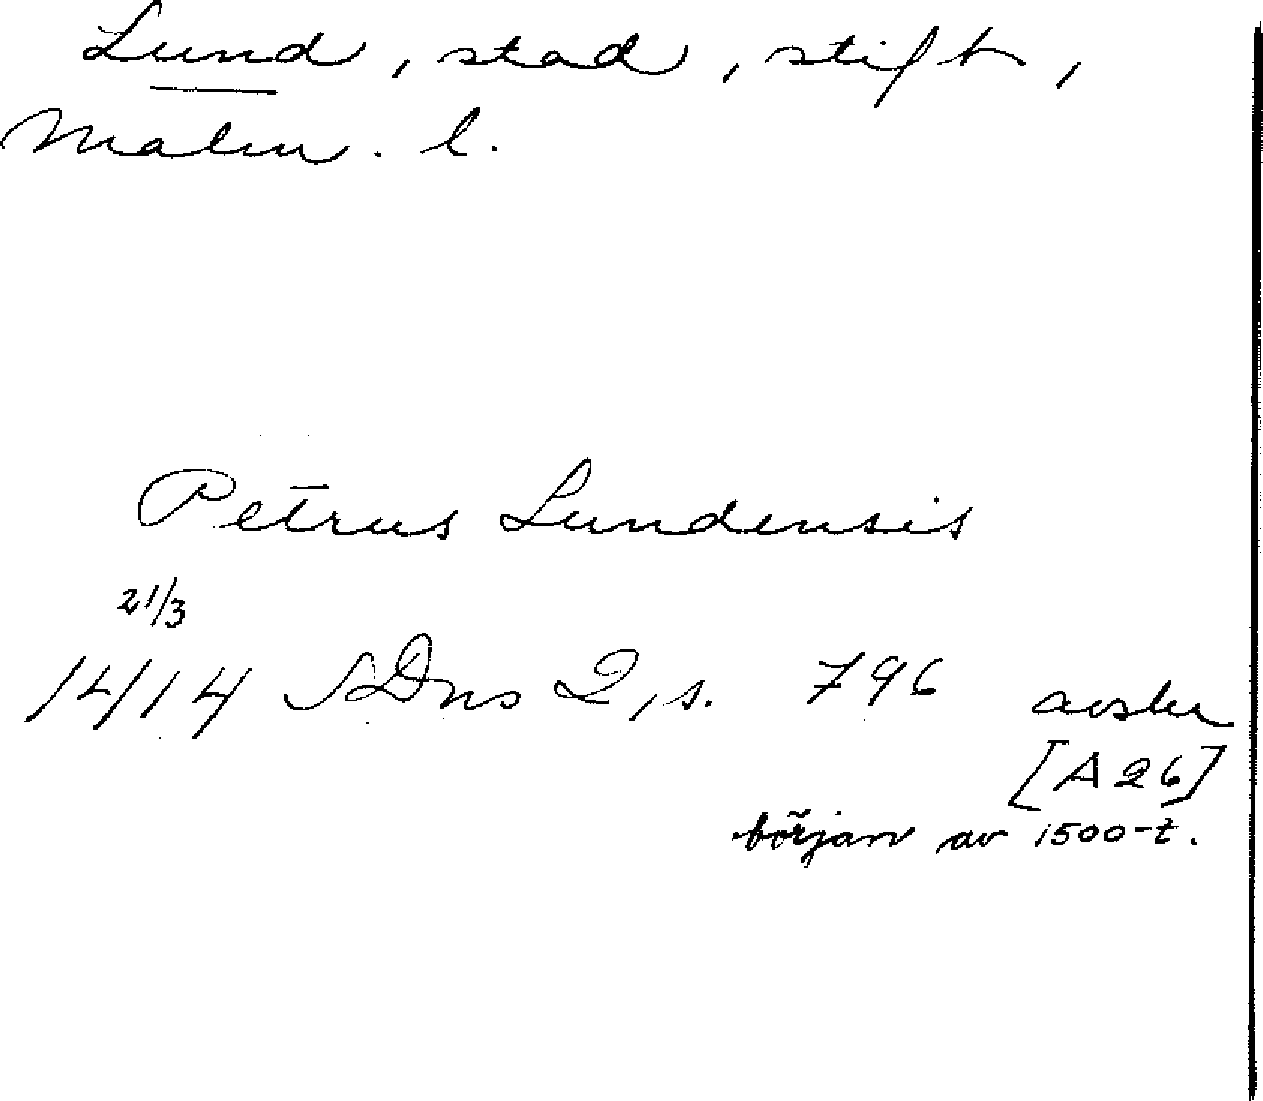 Lund, stad, stift,
Malm. l.
Petrus Lundensis
21/3
1414 SDns 2, s. 796 avskr
[A 26]
början av 1500-t.